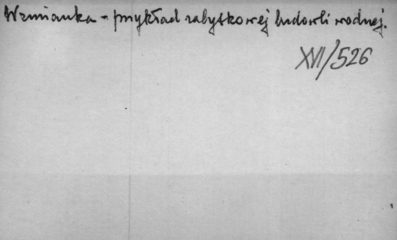 Wzmianka – przykład zabytkowej budowli wodnej.
XVI/526